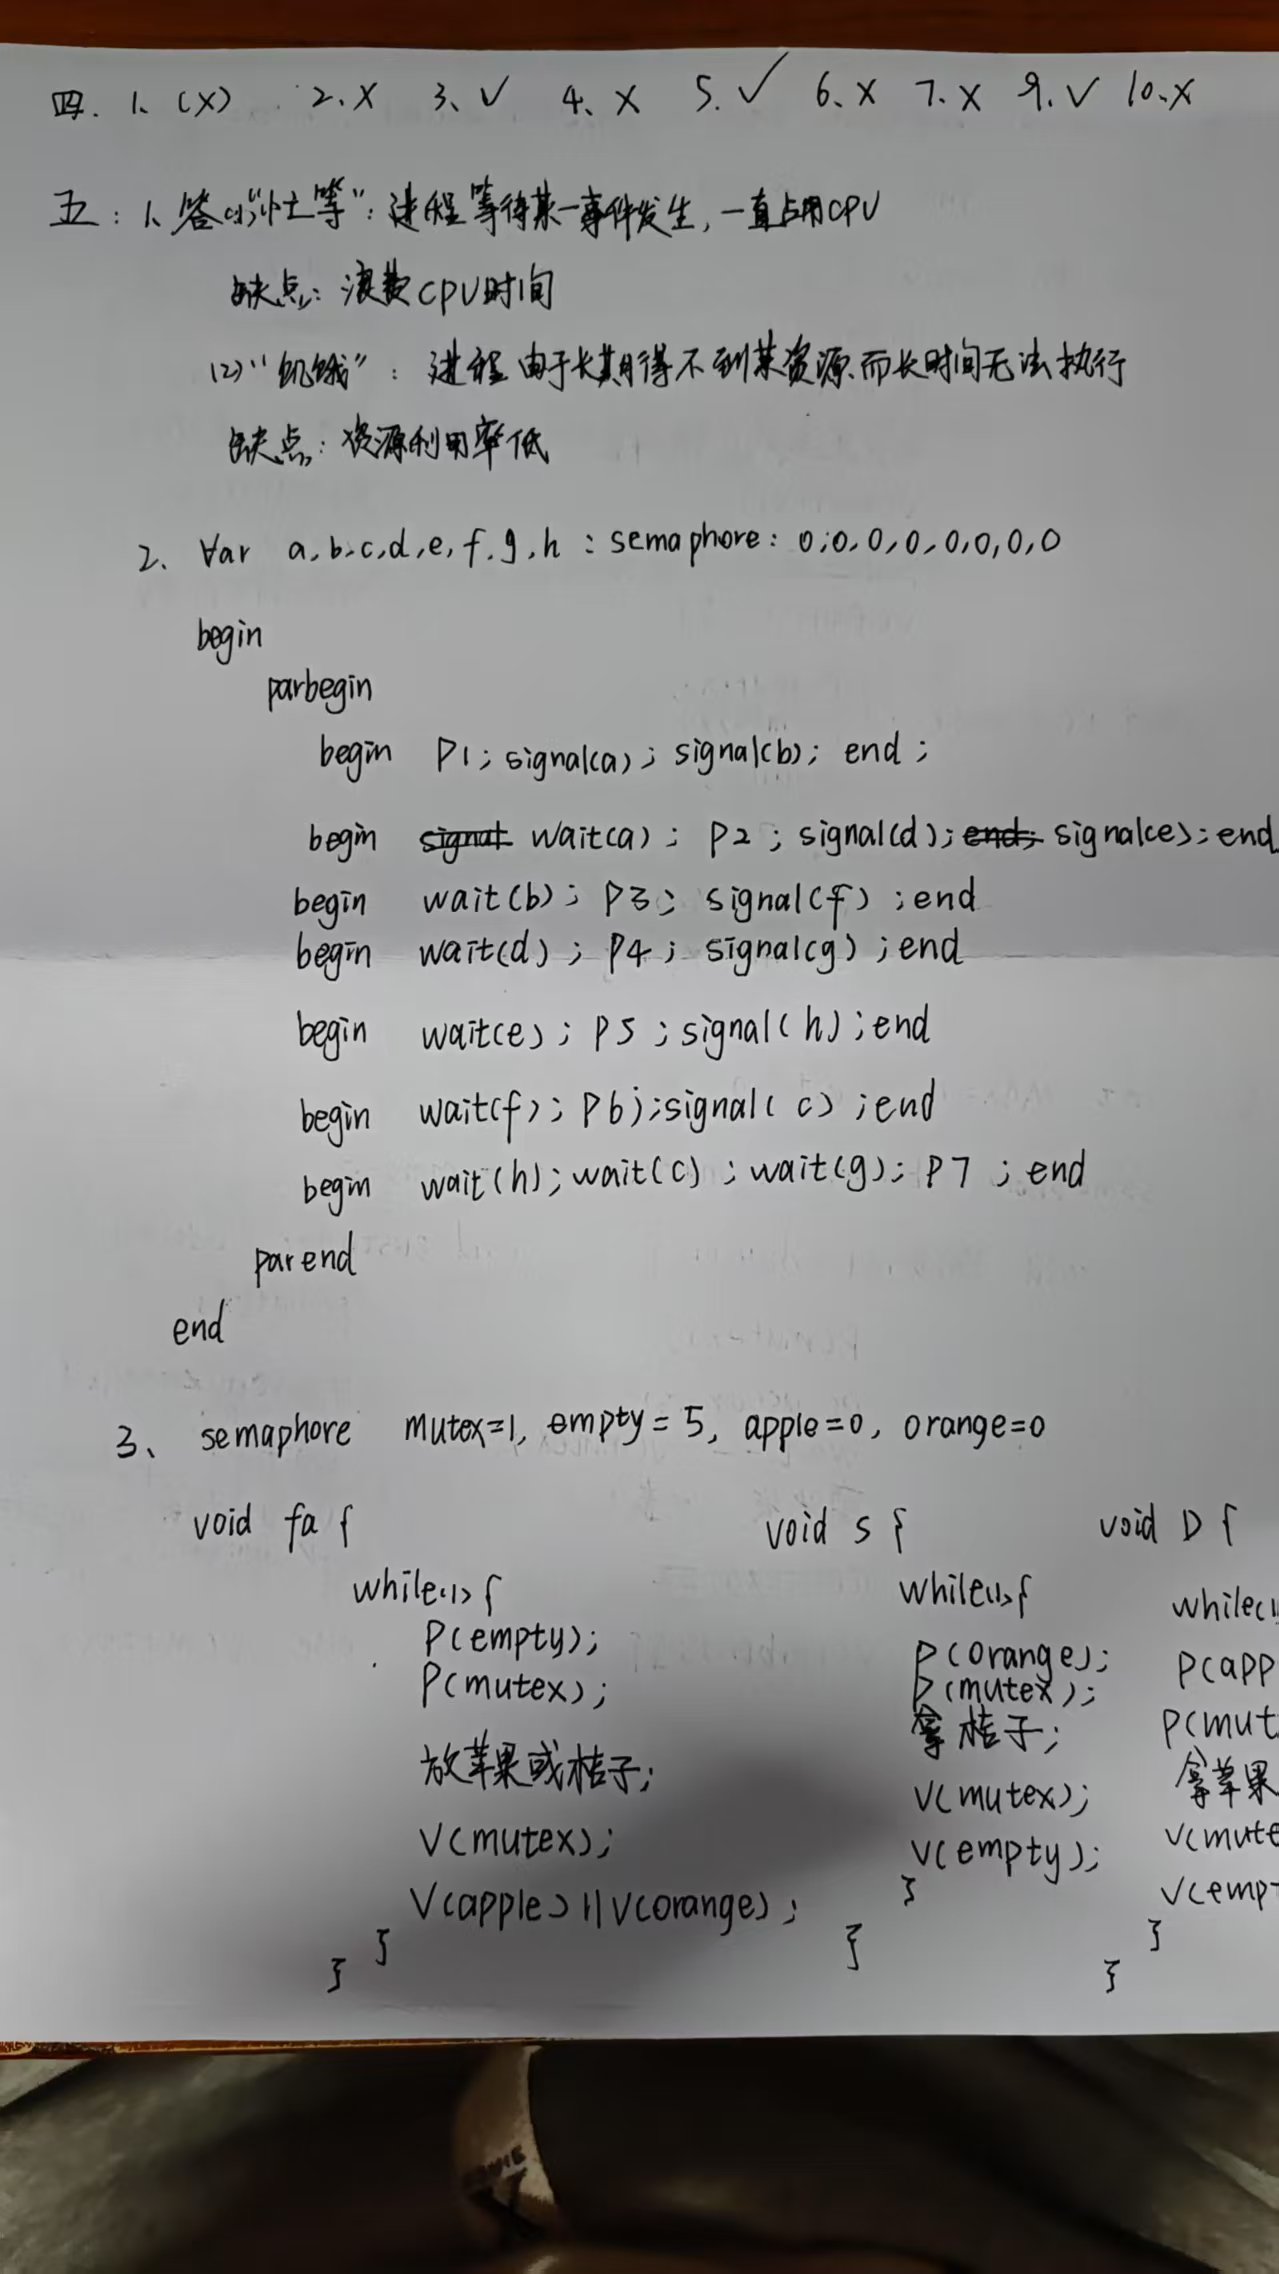 四. 1、(×) 2、× 3、√ 4、× 5、√ 6、× 7、× 9、√ 10、×
五: 1、答:(1)"忙等": 进程等待某一事件发生, 一直占用CPU
缺点: 浪费CPU时间
(2)"饥饿": 进程由于长期得不到某资源而长时间无法执行
缺点: 资源利用率低
2、 Var a,b,c,d,e,f,g,h : semaphore: 0,0,0,0,0,0,0,0
begin
parbegin
begin P1; signal(a); signal(b); end;
begin signal wait(a); P2; signal(d); end; signal(e); end
begin wait(b); P3; signal(f); end
begin wait(d); P4; signal(g); end
begin wait(e); P5; signal(h); end
begin wait(f); P6); signal(c); end
begin wait(h); wait(c); wait(g); P7; end
parend
end
3、 semaphore mutex=1, empty=5, apple=0, orange=0
void fa {
while(1){
P(empty);
P(mutex);
放苹果或桔子;
V(mutex);
V(apple)||V(orange);
}
}
void S {
while(1){
P(orange);
P(mutex);
拿桔子;
V(mutex);
V(empty);
}
}
void D {
while(1
P(app
P(mut
拿苹果
V(mute
V(empt
}
}